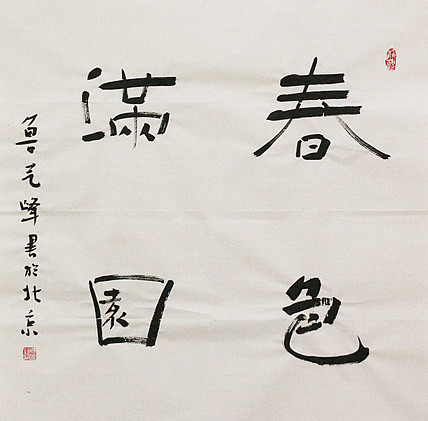 春色
滿園
魯元峰書於北京